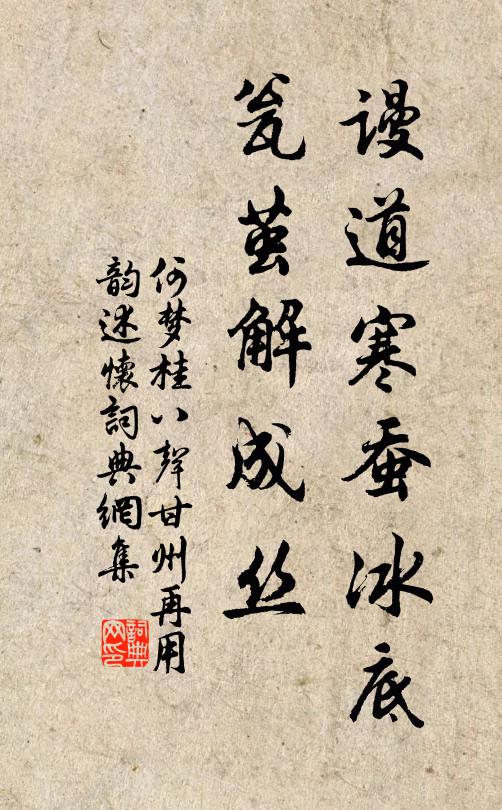 谩道寒蚕冰底
瓮茧解成丝
何梦桂八声甘州再用
韵述怀词典网集
詞典
网印